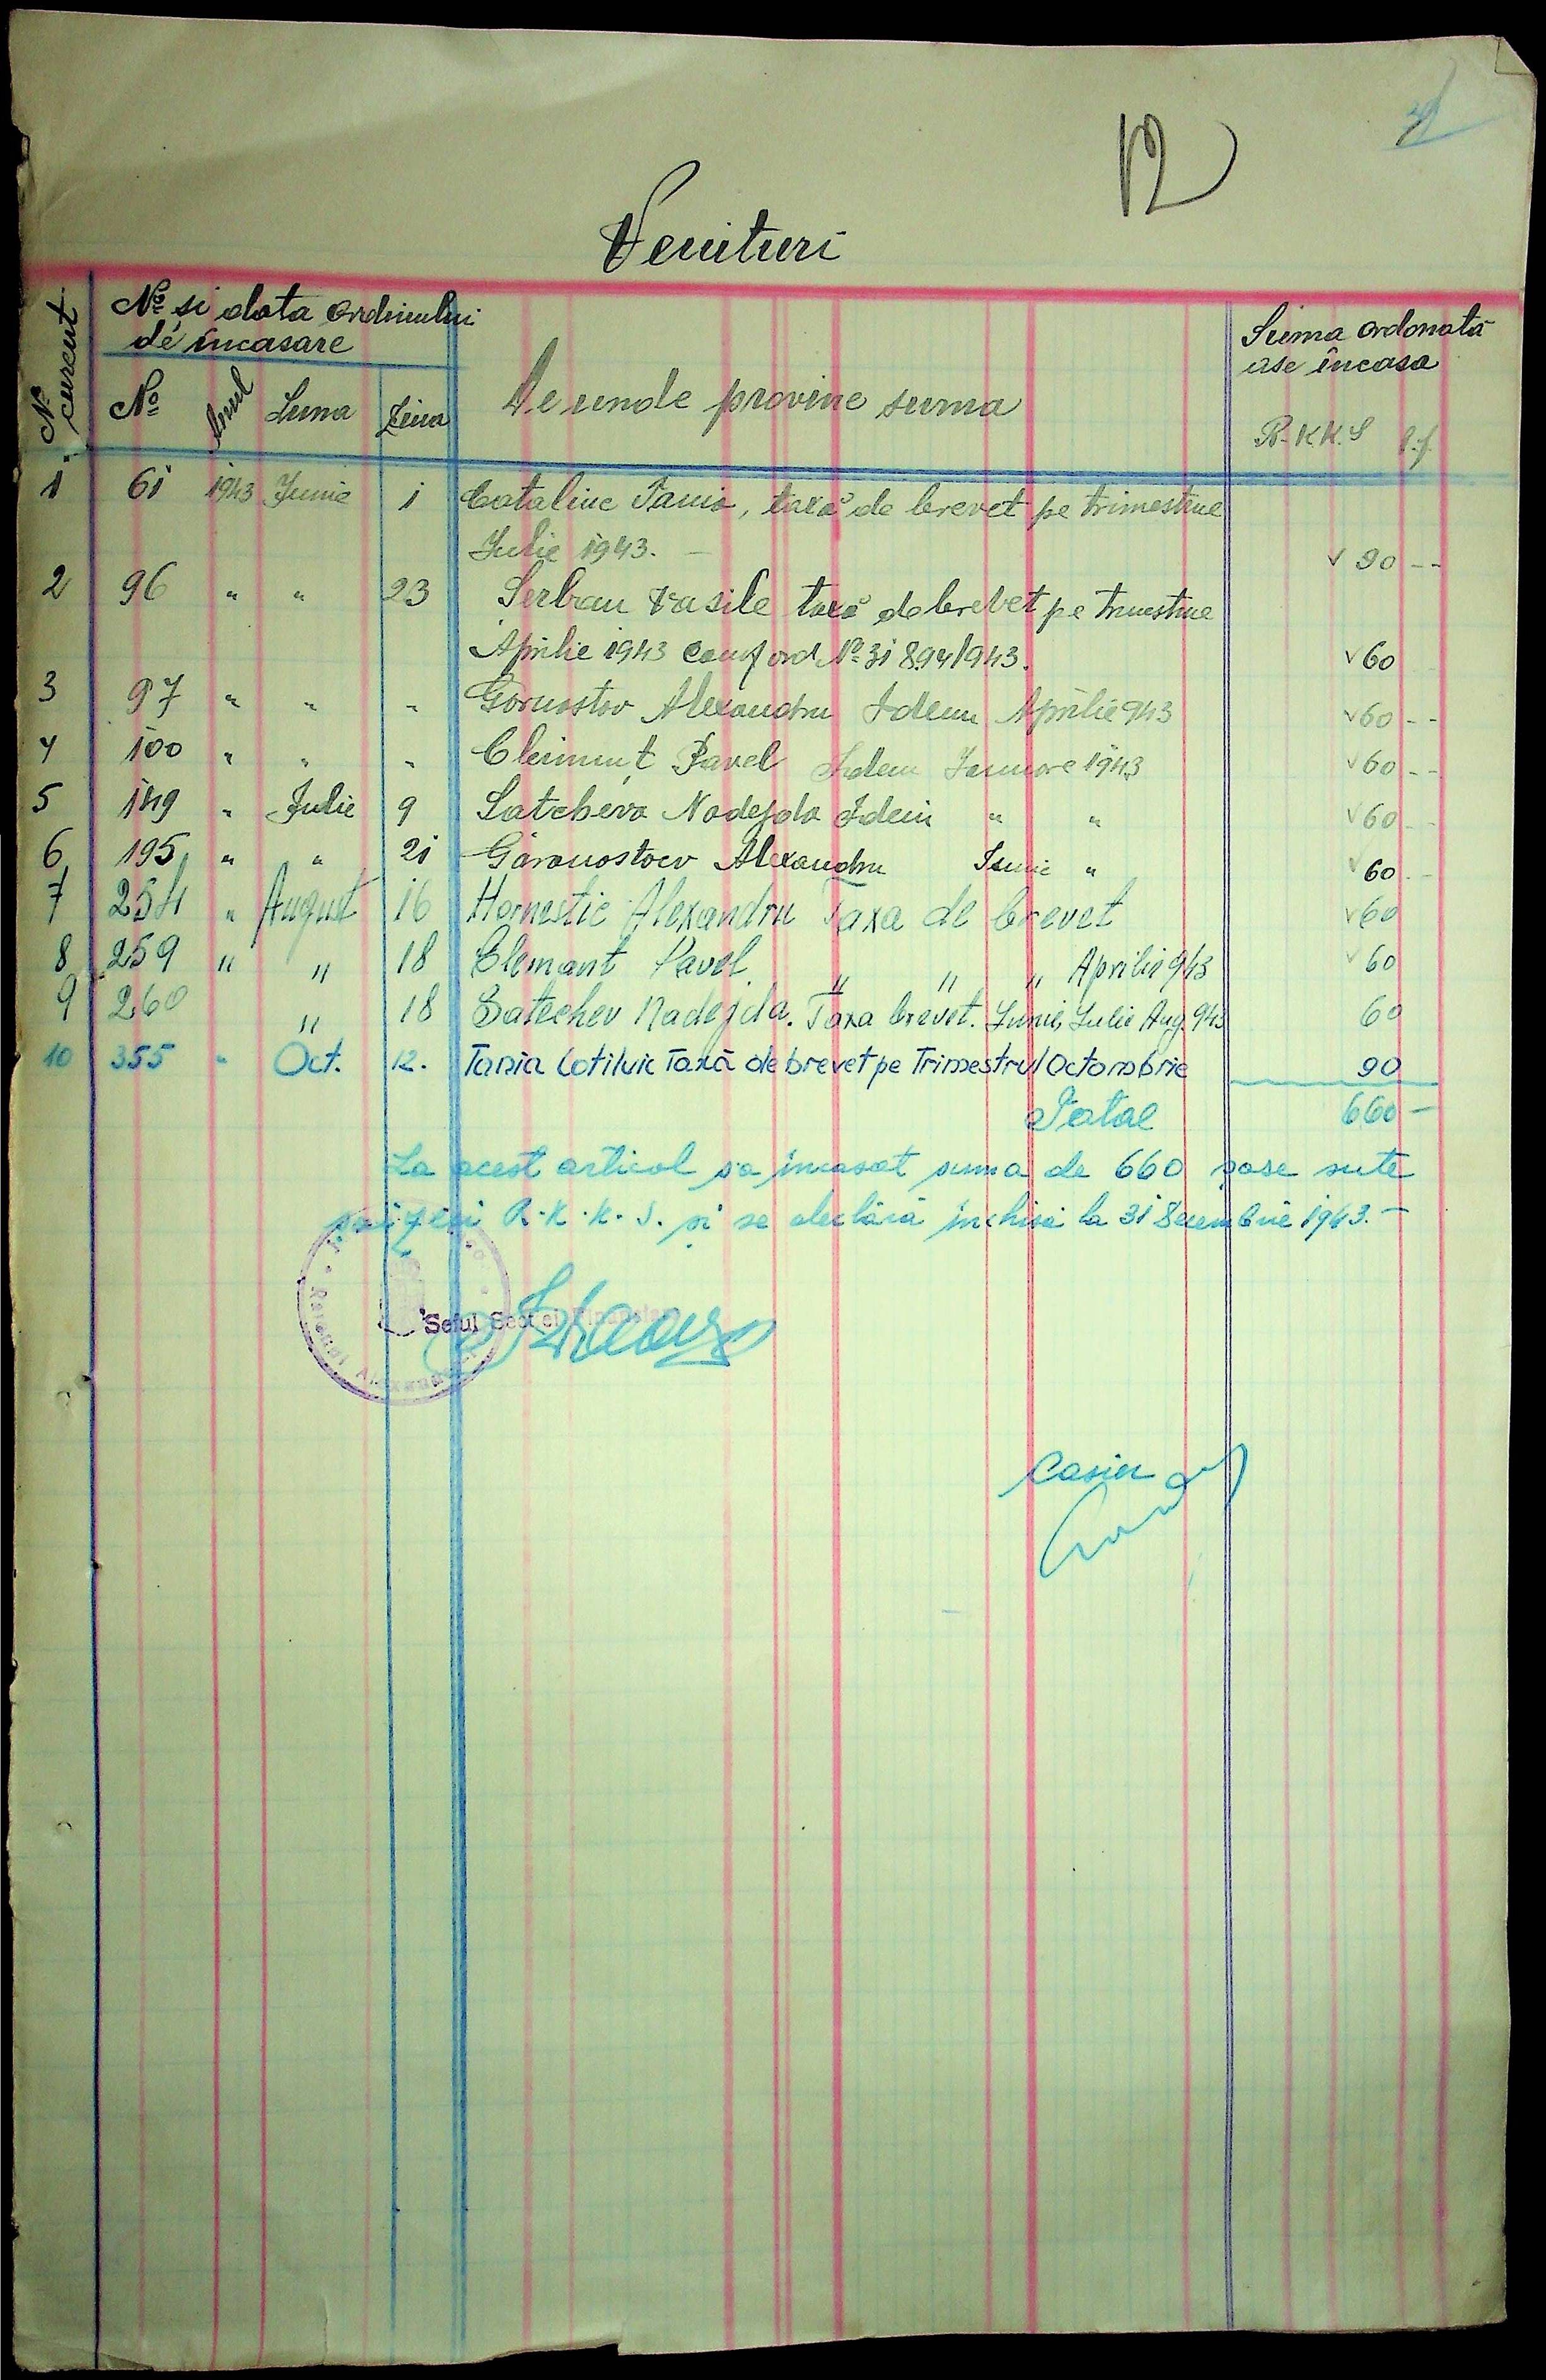 12
Venituri
No curent
No si data ordinului
de încasare
No Anul Luna Ziua
De unde provine suma
Suma ordonată
ase încasa
R.K.K.S
1 61 1943 Junie 1 Cataline Tania, taxă de brevet pe trimestrue
Julie 1943. — 90 --
2 96 " " 23 Serban Vasile taxă de brevet pe trimestrue
Aprilie 1943 conf ord No 31894/943. 60
3 97 " " " Gornostov Alexandru Idem Aprilie 943 60 --
4 100 " " " Cleimenț Pavel Idem Januare 1943 60 --
5 149 " Julie 9 Satcheva Nadejda Idem " " 60 --
6 195 " " 21 Goronostoev Alexandru Junie " 60 --
7 254 " August 16 Hornestic Alexandru Taxa de brevet 60
8 259 " " 18 Clemant Pavel " " " Aprilie 943 60
9 260 " 18 Satechev Nadejda. Taxa brevet. Junie, Julie Aug. 943 60
10 355 " Oct. 12. Tania Cotiluic Taxă de brevet pe Trimestrul Octombrie 90
Total 660 —
La acest articol s'a încasat suma de 660 șase sute
șaizeci R.K.K.S. și se declară închisă la 31 Decembrie 1943. —
Seful Secției Financiare
Casier